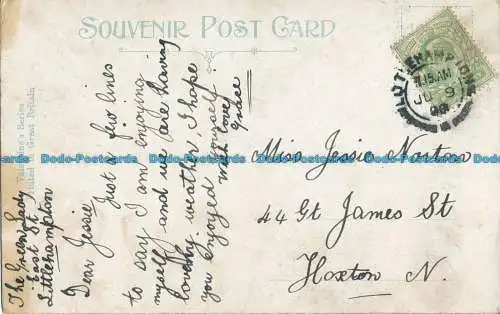 SOUVENIR POST CARD
LITTLEHAMPTON
7.15 AM
JU 9
08
Valentine's Series
Printed in Great Britain
The Green Lady
East St
Littlehampton
Dear Jessie
Just a few lines
to say I am enjoying
myself and we are having
lovely weather, I hope
you enjoyed yourself
with love
Grace
Miss Jessie Norton
44 Gt James St
Hoxton N.
Dodo-Postcards Dodo-Postcards Dodo-Postcards Dodo-Postcards Dodo-Postcards Dodo-Postcards